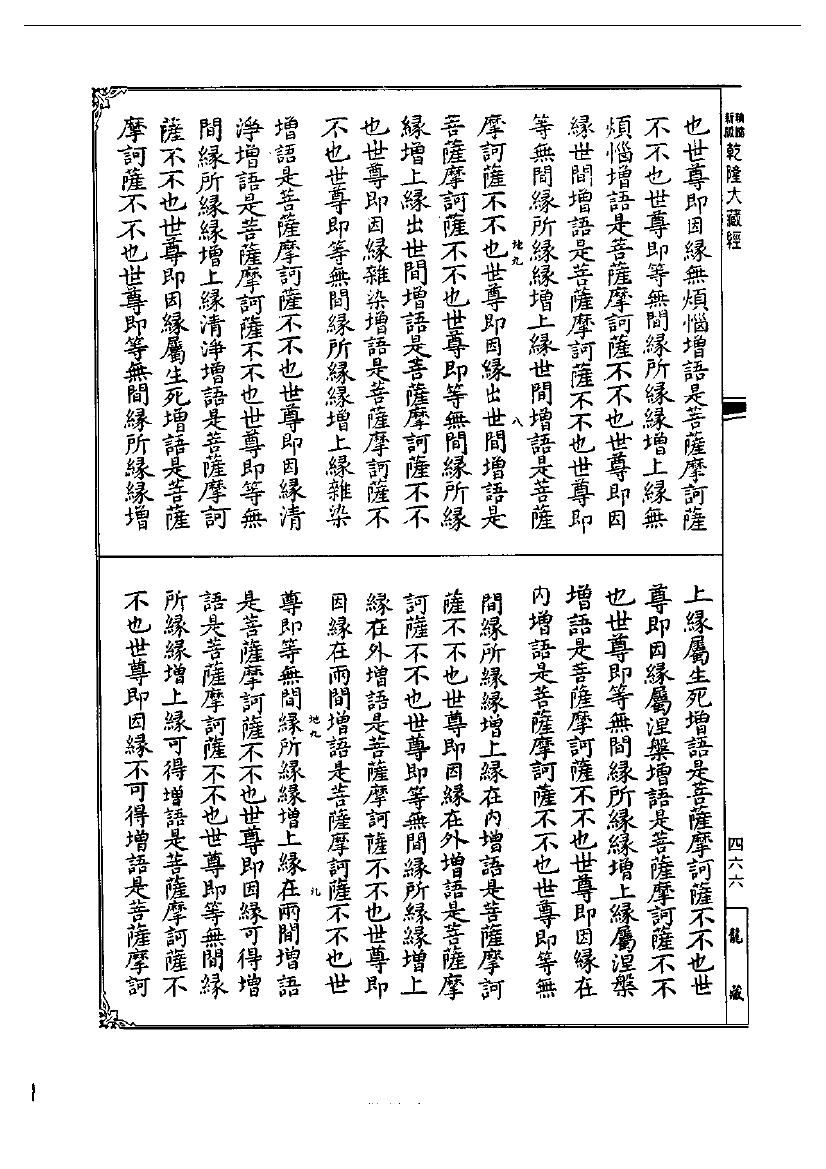 乾隆大藏經
也世尊即因縁無煩惱增語是菩薩摩訶薩
不不也世尊即等無間縁所縁縁增上縁無
煩惱增語是菩薩摩訶薩不不也世尊即因
縁世間增語是菩薩摩訶薩不不也世尊即
等無間縁所縁縁增上縁世間增語是菩薩
地九 八
摩訶薩不不也世尊即因縁出世間增語是
菩薩摩訶薩不不也世尊即等無間縁所縁
縁增上縁出世間增語是菩薩摩訶薩不不
也世尊即因縁雜染增語是菩薩摩訶薩不
不也世尊即等無間縁所縁縁增上縁雜染
增語是菩薩摩訶薩不不也世尊即因縁清
淨增語是菩薩摩訶薩不不也世尊即等無
間縁所縁縁增上縁清淨增語是菩薩摩訶
薩不不也世尊即因縁屬生死增語是菩薩
摩訶薩不不也世尊即等無間縁所縁縁增
四六六
龍藏
上縁屬生死增語是菩薩摩訶薩不不也世
尊即因縁屬涅槃增語是菩薩摩訶薩不不
也世尊即等無間縁所縁縁增上縁屬涅槃
增語是菩薩摩訶薩不不也世尊即因縁在
内增語是菩薩摩訶薩不不也世尊即等無
間縁所縁縁增上縁在内增語是菩薩摩訶
薩不不也世尊即因縁在外增語是菩薩摩
訶薩不不也世尊即等無間縁所縁縁增上
縁在外增語是菩薩摩訶薩不不也世尊即
因縁在兩間增語是菩薩摩訶薩不不也世
地九 九
尊即等無間縁所縁縁增上縁在兩間增語
是菩薩摩訶薩不不也世尊即因縁可得增
語是菩薩摩訶薩不不也世尊即等無間縁
所縁縁增上縁可得增語是菩薩摩訶薩不
不也世尊即因縁不可得增語是菩薩摩訶